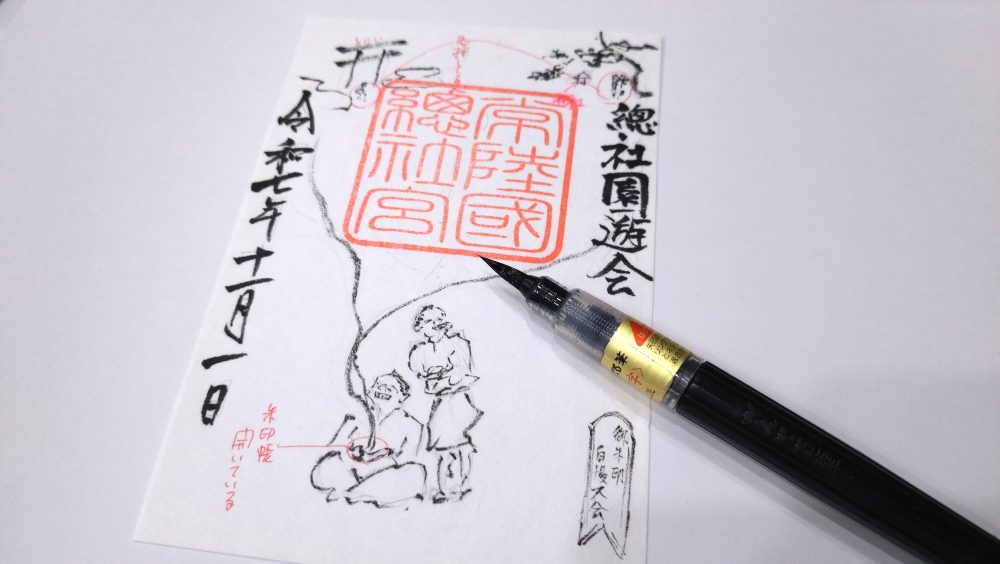 總社園遊会
常陸國
總社宮
令和七年十一月一日
朱印帳
開いている
御朱印
自慢大会